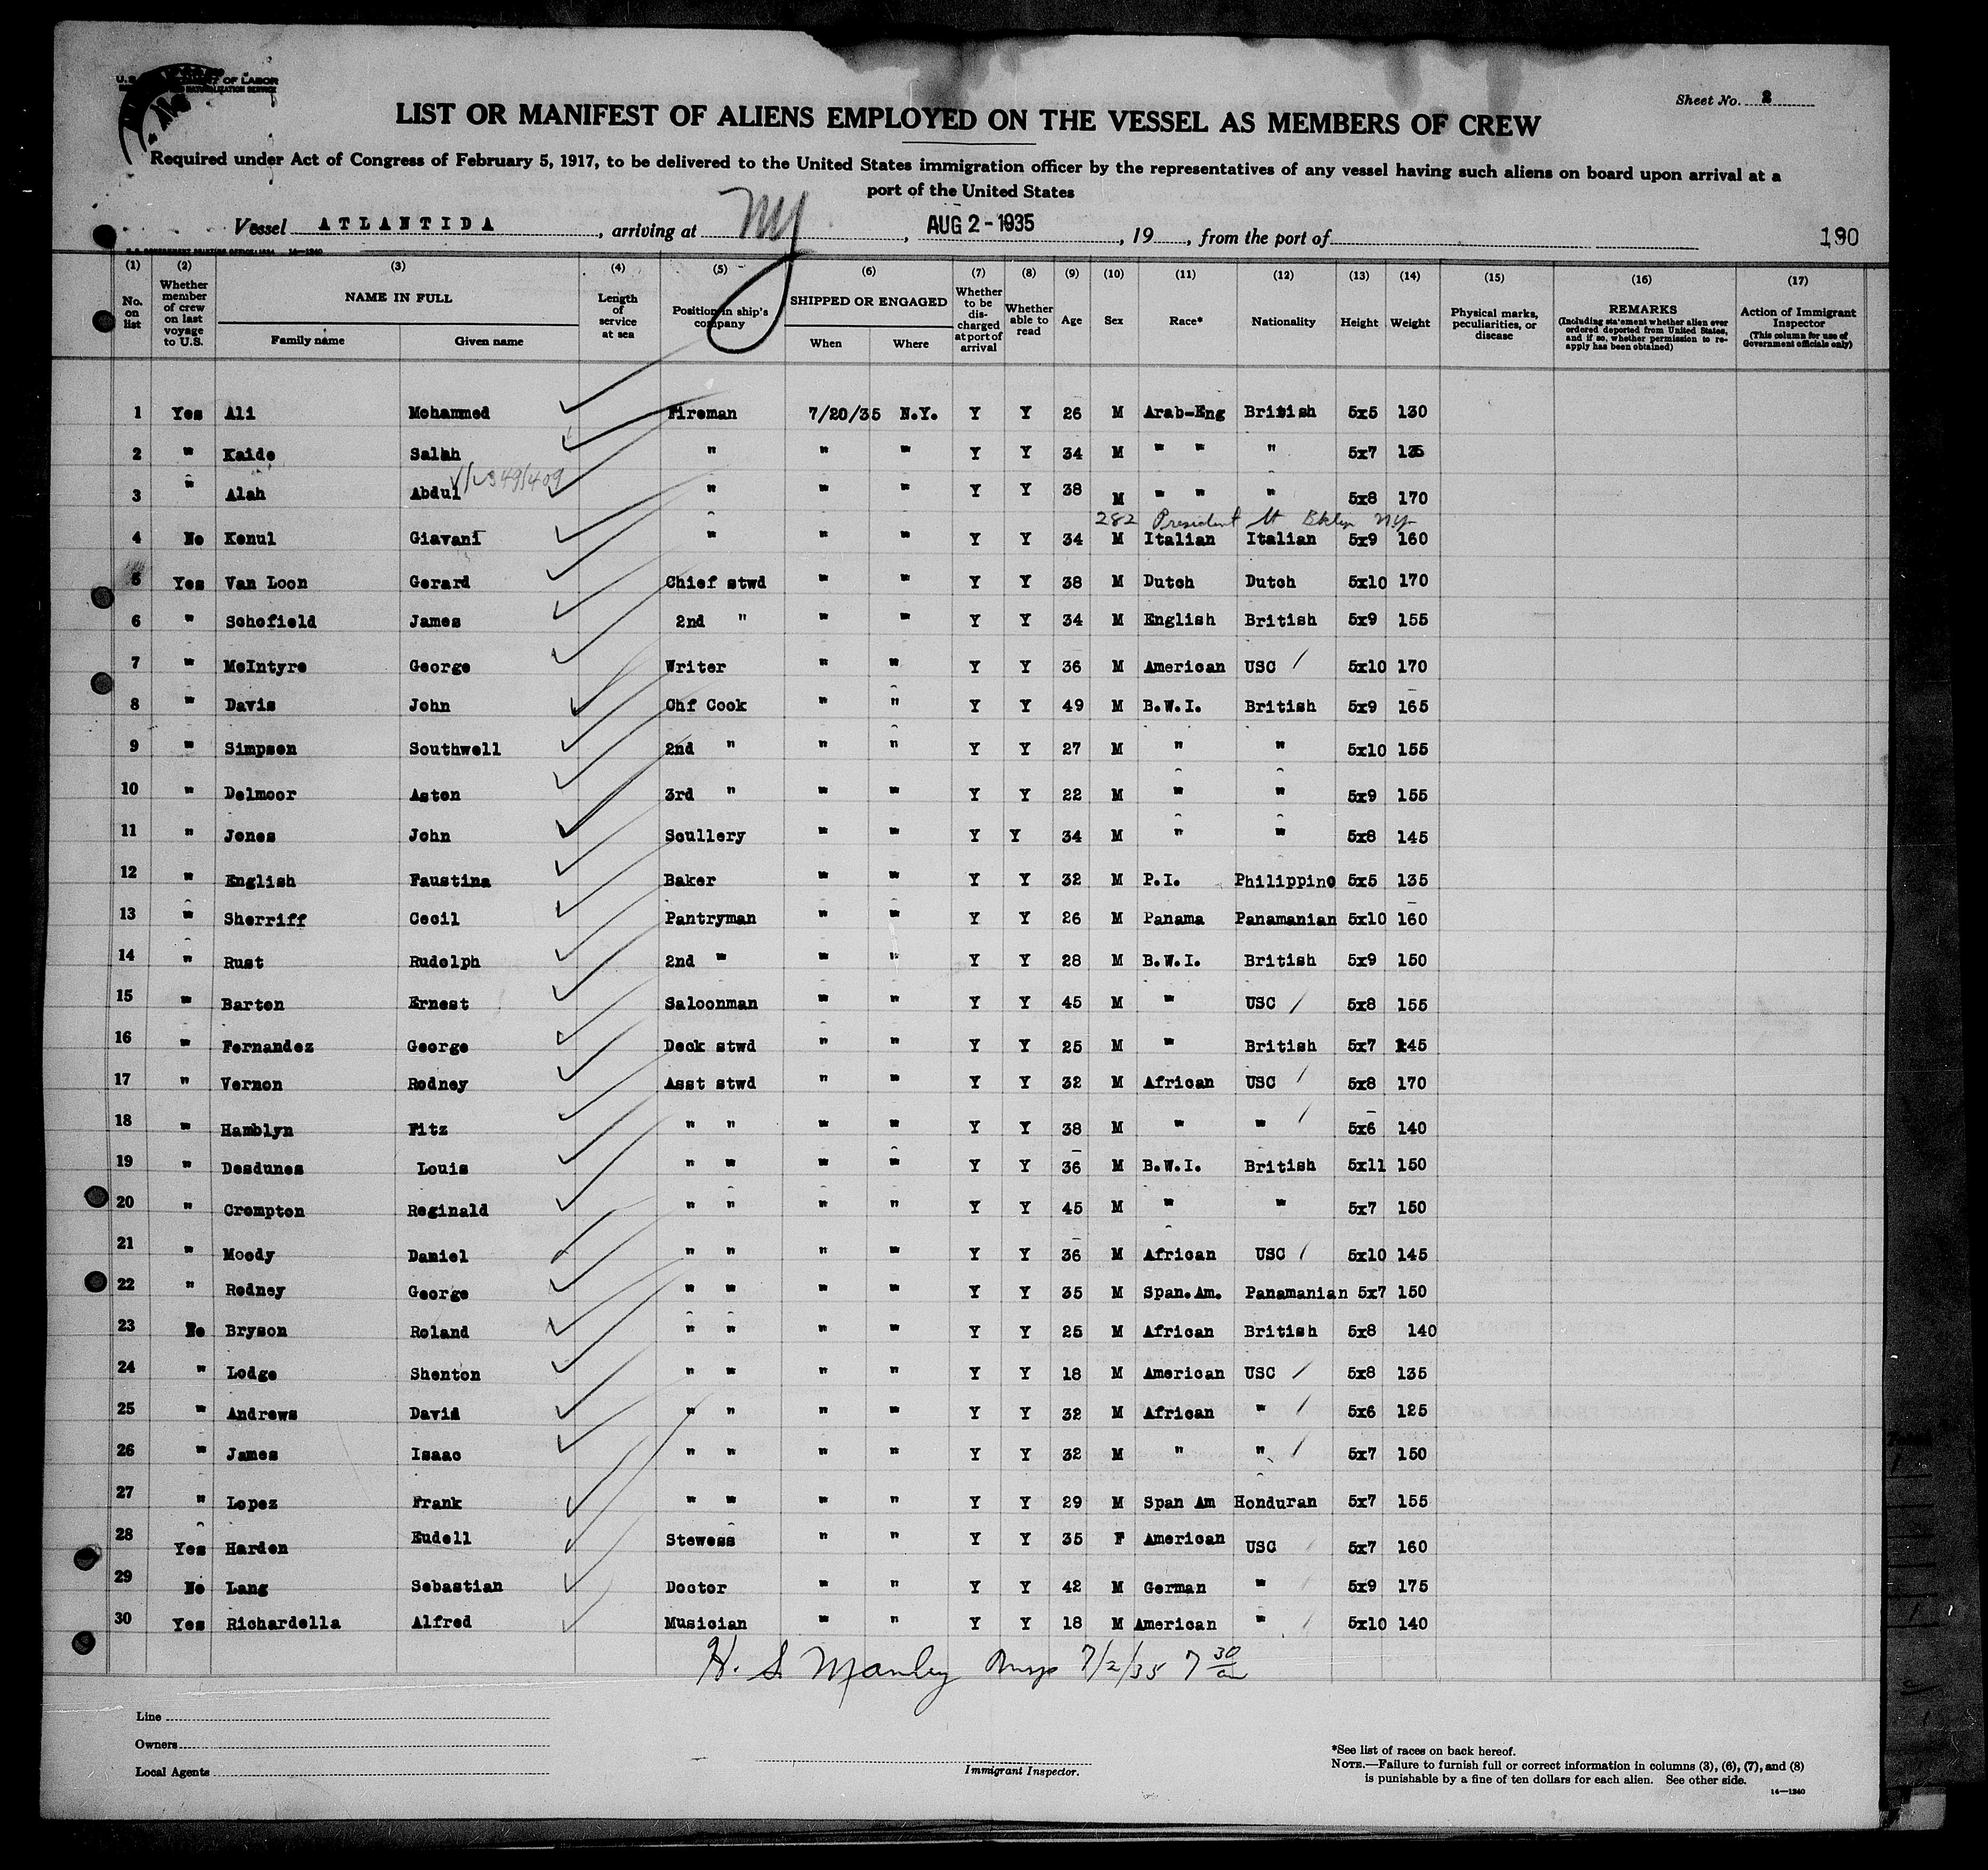 U.S. DEPARTMENT OF LABOR
NATURALIZATION SERVICE
Sheet No. 2
LIST OR MANIFEST OF ALIENS EMPLOYED ON THE VESSEL AS MEMBERS OF CREW
Required under Act of Congress of February 5, 1917, to be delivered to the United States immigration officer by the representatives of any vessel having such aliens on board upon arrival at a
port of the United States
Vessel ATLANTIDA, arriving at NY, AUG 2-1935, 19, from the port of
190
U. S. GOVERNMENT PRINTING OFFICE: 1934 14—1240
(1) No. on list (2) Whether member of crew on last voyage to U.S. (3) NAME IN FULL Family name Given name (4) Length of service at sea (5) Position in ship's company (6) SHIPPED OR ENGAGED When Where (7) Whether to be discharged at port of arrival (8) Whether able to read (9) Age (10) Sex (11) Race* (12) Nationality (13) Height (14) Weight (15) Physical marks, peculiarities, or disease (16) REMARKS (Including statement whether alien ever ordered deported from United States, and if so, whether permission to reapply has been obtained) (17) Action of Immigrant Inspector (This column for use of Government officials only)
1 Yes Ali Mohammed Fireman 7/20/35 N.Y. Y Y 26 M Arab-Eng British 5x5 130
2 " Kaide Salah " " " Y Y 34 M " " " 5x7 135
3 " Alah Abdul " " " Y Y 38 M " " " 5x8 170
282 President St Bklyn NY
4 No Konul Giavani " " " Y Y 34 M Italian Italian 5x9 160
5 Yes Van Loon Gerard Chief stwd " " Y Y 38 M Dutch Dutch 5x10 170
6 " Schofield James 2nd " " " Y Y 34 M English British 5x9 155
7 " McIntyre George Writer " " Y Y 36 M American USC / 5x10 170
8 " Davis John Chf Cook " " Y Y 49 M B.W.I. British 5x9 165
9 " Simpson Southwell 2nd " " " Y Y 27 M " " 5x10 155
10 " Delmoor Aston 3rd " " " Y Y 22 M " " 5x9 155
11 " Jones John Scullery " " Y Y 34 M " " 5x8 145
12 " English Faustina Baker " " Y Y 32 M P.I. Philippino 5x5 135
13 " Sherriff Cecil Pantryman " " Y Y 26 M Panama Panamanian 5x10 160
14 " Rust Rudolph 2nd " " " Y Y 28 M B.W.I. British 5x9 150
15 " Barton Ernest Saloonman " " Y Y 45 M " USC / 5x8 155
16 " Fernandez George Deck stwd " " Y Y 25 M " British 5x7 145
17 " Vernon Rodney Asst stwd " " Y Y 32 M African USC / 5x8 170
18 " Hamblyn Fitz " " " " Y Y 38 M " " / 5x6 140
19 " Desdunes Louis " " " " Y Y 36 M B.W.I. British 5x11 150
20 " Crompton Reginald " " " " Y Y 45 M " " 5x7 150
21 " Moody Daniel " " " " Y Y 36 M African USC / 5x10 145
22 " Rodney George " " " " Y Y 35 M Span.Am. Panamanian 5x7 150
23 No Bryson Roland " " " " Y Y 25 M African British 5x8 140
24 " Lodge Shenton " " " " Y Y 18 M American USC / 5x8 135
25 " Andrews David " " " " Y Y 32 M African " / 5x6 125
26 " James Isaac " " " " Y Y 32 M " " / 5x7 150
27 " Lopez Frank " " " " Y Y 29 M Span Am Honduran 5x7 155
28 Yes Harden Eudell Stewess " " Y Y 35 F American USC 5x7 160
29 No Lang Sebastian Doctor " " Y Y 42 M German " 5x9 175
30 Yes Richardella Alfred Musician " " Y Y 18 M American " 5x10 140
H. S. Manley Insp 7/2/35 7 30 am
Line
Owners
Local Agents
Immigrant Inspector.
*See list of races on back hereof.
NOTE.—Failure to furnish full or correct information in columns (3), (6), (7), and (8)
is punishable by a fine of ten dollars for each alien. See other side.
14—1240